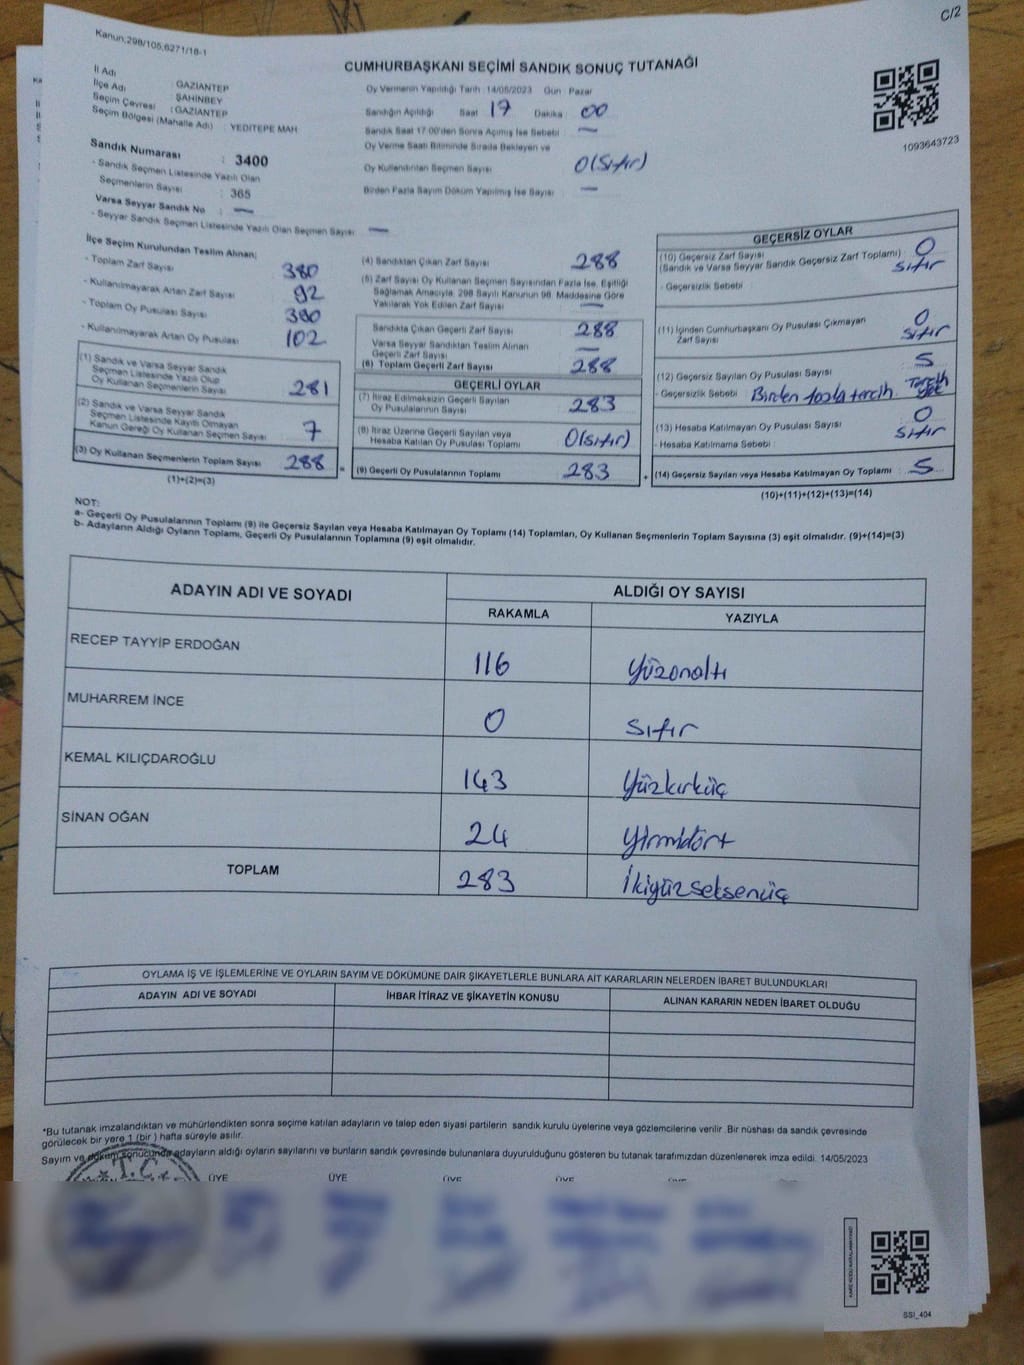 C/2
Kanun;298/105,6271/18-1
CUMHURBAŞKANI SEÇİMİ SANDIK SONUÇ TUTANAĞI
İl Adı : GAZİANTEP
İlçe Adı : ŞAHİNBEY
Seçim Çevresi : GAZİANTEP
Seçim Bölgesi (Mahalle Adı) : YEDİTEPE MAH
Sandık Numarası : 3400
- Sandık Seçmen Listesinde Yazılı Olan
Seçmenlerin Sayısı : 365
Varsa Seyyar Sandık No —
- Seyyar Sandık Seçmen Listesinde Yazılı Olan Seçmen Sayısı —
Oy Vermenin Yapıldığı Tarih :14/05/2023 Gün : Pazar
Sandığın Açıldığı Saat 17 Dakika 00
Sandık Saat 17:00'den Sonra Açılmış İse Sebebi : —
Oy Verme Saati Bitiminde Sırada Bekleyen ve
Oy Kullandırılan Seçmen Sayısı 0(sıfır)
Birden Fazla Sayım Döküm Yapılmış İse Sayısı —
1093643723
İlçe Seçim Kurulundan Teslim Alınan;
- Toplam Zarf Sayısı 380
- Kullanılmayarak Artan Zarf Sayısı 92
- Toplam Oy Pusulası Sayısı
- Kullanılmayarak Artan Oy Pusulası 102
(1) Sandık ve Varsa Seyyar Sandık
Seçmen Listesinde Yazılı Olup
Oy Kullanan Seçmenlerin Sayısı 281
(2) Sandık ve Varsa Seyyar Sandık
Seçmen Listesinde Kayıtlı Olmayan
Kanun Gereği Oy Kullanan Seçmen Sayısı 7
(3) Oy Kullanan Seçmenlerin Toplam Sayısı 288
(1)+(2)=(3)
(4) Sandıktan Çıkan Zarf Sayısı 288
(5) Zarf Sayısı Oy Kullanan Seçmen Sayısından Fazla İse, Eşitliği
Sağlamak Amacıyla, 298 Sayılı Kanunun 98. Maddesine Göre
Yakılarak Yok Edilen Zarf Sayısı —
Sandıkta Çıkan Geçerli Zarf Sayısı 288
Varsa Seyyar Sandıktan Teslim Alınan
Geçerli Zarf Sayısı —
(6) Toplam Geçerli Zarf Sayısı 288
GEÇERLİ OYLAR
(7) İtiraz Edilmeksizin Geçerli Sayılan
Oy Pusulalarının Sayısı 283
(8) İtiraz Üzerine Geçerli Sayılan veya
Hesaba Katılan Oy Pusulası Toplamı 0(sıfır)
= (9) Geçerli Oy Pusulalarının Toplamı 283
GEÇERSİZ OYLAR
(10) Geçersiz Zarf Sayısı 0
(Sandık ve Varsa Seyyar Sandık Geçersiz Zarf Toplamı) : sıfır
- Geçersizlik Sebebi
(11) İçinden Cumhurbaşkanı Oy Pusulası Çıkmayan 0
Zarf Sayısı sıfır
(12) Geçersiz Sayılan Oy Pusulası Sayısı 5
- Geçersizlik Sebebi Birden fazla tercih Tercih
(13) Hesaba Katılmayan Oy Pusulası Sayısı 0
- Hesaba Katılmama Sebebi : sıfır
+ (14) Geçersiz Sayılan veya Hesaba Katılmayan Oy Toplamı : 5
(10)+(11)+(12)+(13)=(14)
NOT:
a- Geçerli Oy Pusulalarının Toplamı (9) ile Geçersiz Sayılan veya Hesaba Katılmayan Oy Toplamı (14) Toplamları, Oy Kullanan Seçmenlerin Toplam Sayısına (3) eşit olmalıdır. (9)+(14)=(3)
b- Adayların Aldığı Oyların Toplamı, Geçerli Oy Pusulalarının Toplamına (9) eşit olmalıdır.
ADAYIN ADI VE SOYADI ALDIĞI OY SAYISI
RAKAMLA YAZIYLA
RECEP TAYYİP ERDOĞAN 116 yüzonaltı
MUHARREM İNCE 0 sıfır
KEMAL KILIÇDAROĞLU 143 yüzkırküç
SİNAN OĞAN 24 yirmidört
TOPLAM 283 ikiyüzseksenüç
OYLAMA İŞ VE İŞLEMLERİNE VE OYLARIN SAYIM VE DÖKÜMÜNE DAİR ŞİKAYETLERLE BUNLARA AİT KARARLARIN NELERDEN İBARET BULUNDUKLARI
ADAYIN ADI VE SOYADI İHBAR İTİRAZ VE ŞİKAYETİN KONUSU ALINAN KARARIN NEDEN İBARET OLDUĞU
*Bu tutanak imzalandıktan ve mühürlendikten sonra seçime katılan adayların ve talep eden siyasi partilerin sandık kurulu üyelerine veya gözlemcilerine verilir. Bir nüshası da sandık çevresinde
görülecek bir yere 1 (bir ) hafta süreyle asılır.
Sayım ve döküm sonucunda adayların aldığı oyların sayılarını ve bunların sandık çevresinde bulunanlara duyurulduğunu gösteren bu tutanak tarafımızdan düzenlenerek imza edildi. 14/05/2023
T.C.
ÜYE ÜYE ÜYE ÜYE ÜYE
SSI_404